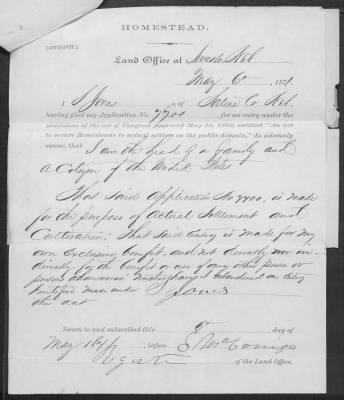 HOMESTEAD.
(AFFIDAVIT.)
Land Office at Lincoln Neb
May 6 1871.
I, S Jones of Saline Co Neb.
having filed my Application No. 7700, for an entry under the
provisions of the act of Congress approved May 20, 1862, entitled "An act
to secure Homesteads to actual settlers on the public domain," do solemnly
swear, that I am the head of a family and
A Citizen of the United States
That Said Application No 7700, is made
for the purpose of Actual Settlement and
Cultivation; That Said Entry is made for my
own Exclusive benefit, and not directly nor in-
directly for the benefit or use of any other person or
persons whomsoever. Neither have I heretofore made an Entry
under
this act S Jones
Sworn to and subscribed this 6 day of
May 1871, before
Register of the Land Office.